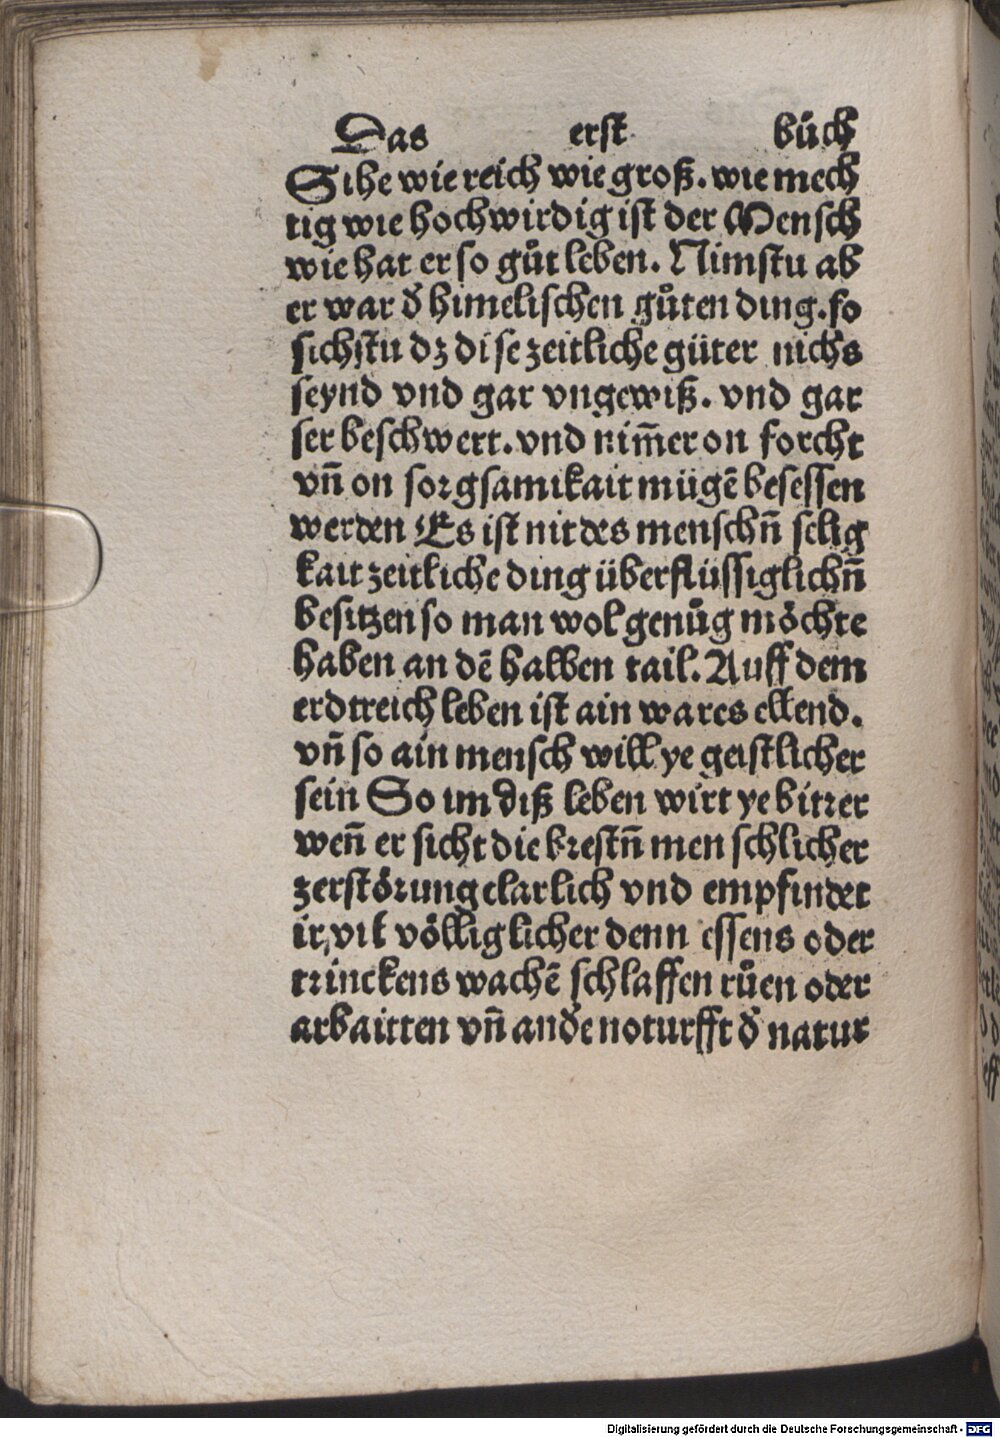 Das erst bůch
Sihe wie reich wie groß. wie mech
tig wie hochwirdig ist der Mensch
wie hat er so gůt leben. Nimstu ab
er war d̕ himelischen gůten ding. so
sichstu dz dise zeitliche güter nichs
seynd vnd gar vngewiß. vnd gar
ser beschwert. vnd nim̄er on forcht
vn̄ on sorgsamikait mügē besessen
werden Es ist nit des menschn̄ selig
kait zeitliche ding überflüssiglichn̄
besitzen so man wol genůg möchte
haben an dē halben tail. Auff dem
erdtreich leben ist ain wares ellend.
vn̄ so ain mensch will ye geistlicher
sein So im diß leben wirt ye bitter
wen̄ er sicht die brestn̄ menschlicher
zerstörung clarlich vnd empfindet
ir, vil völliglicher denn essens oder
trinckens wachē schlaffen růen oder
arbaitten vn̄ and̕e noturfft d̕ natur
Digitalisierung gefördert durch die Deutsche Forschungsgemeinschaft - DFG